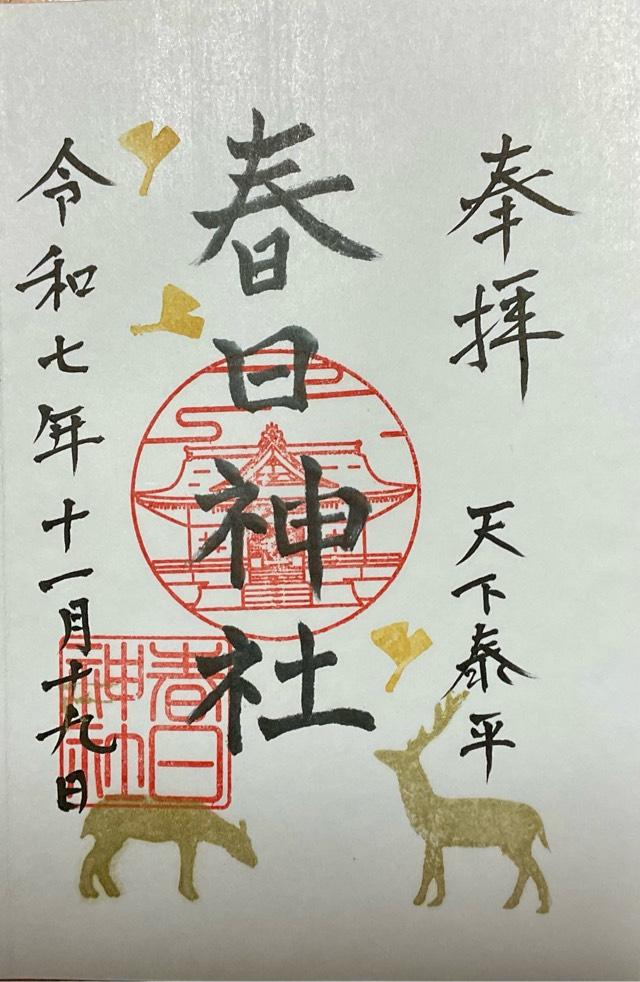 奉拝
天下泰平
春日神社
春日神社
令和七年十一月十九日